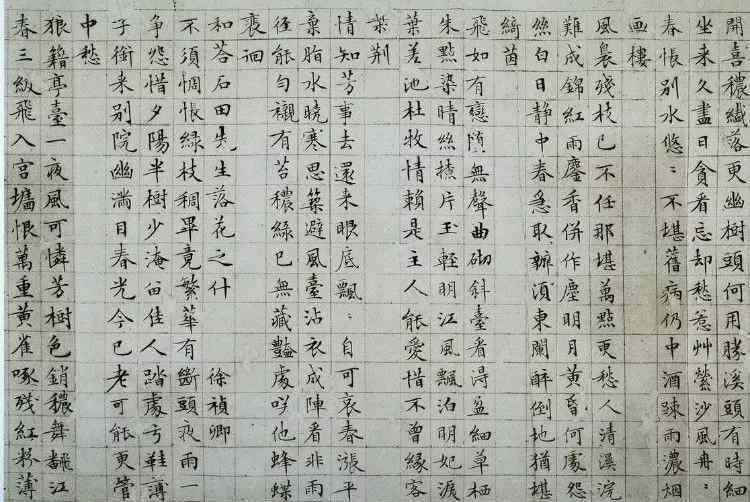 開喜穠纖落更幽樹頭何用勝溪頭有時細
坐来久盡日貪看忘却愁惹艸縈沙風冉:
春悵別水悠:不堪舊病仍中酒踈雨濃烟
画樓
風裊殘枝已不任那堪萬點更愁人清溪浣
難成錦紅雨塵香併作塵明月黄昏何處怨
絲白日静中春急取辦湏東闌醉倒地猶堪
綺茵
飛如有戀墮無聲曲砌斜臺看淂盈細草栖
朱點染晴絲撩片玉輕明江風飄泊明妃淚
葉差池杜牧情賴是主人能愛惜不曾縁客
柴荆
情知芳事去還来眼底飄:自可哀春漲平
棄脂水曉寒思築避風臺沾衣成陣看非雨
徑能勻襯有苔穠綠已無藏艷處咲他蜂蝶
裵徊
和荅石田先生落花之什 徐禎卿
不須惆悵綠枝稠畢竟繁華有斷頭夜雨一
争怨惜夕陽半樹少淹留佳人踏處弓鞋薄
子銜来別院幽滿目春光今已老可能更管
中愁
狼籍亭臺一夜風可憐芳樹色銷穠舞翻江
春三級飛入宫墻恨萬重黄雀啄殘紅粉薄